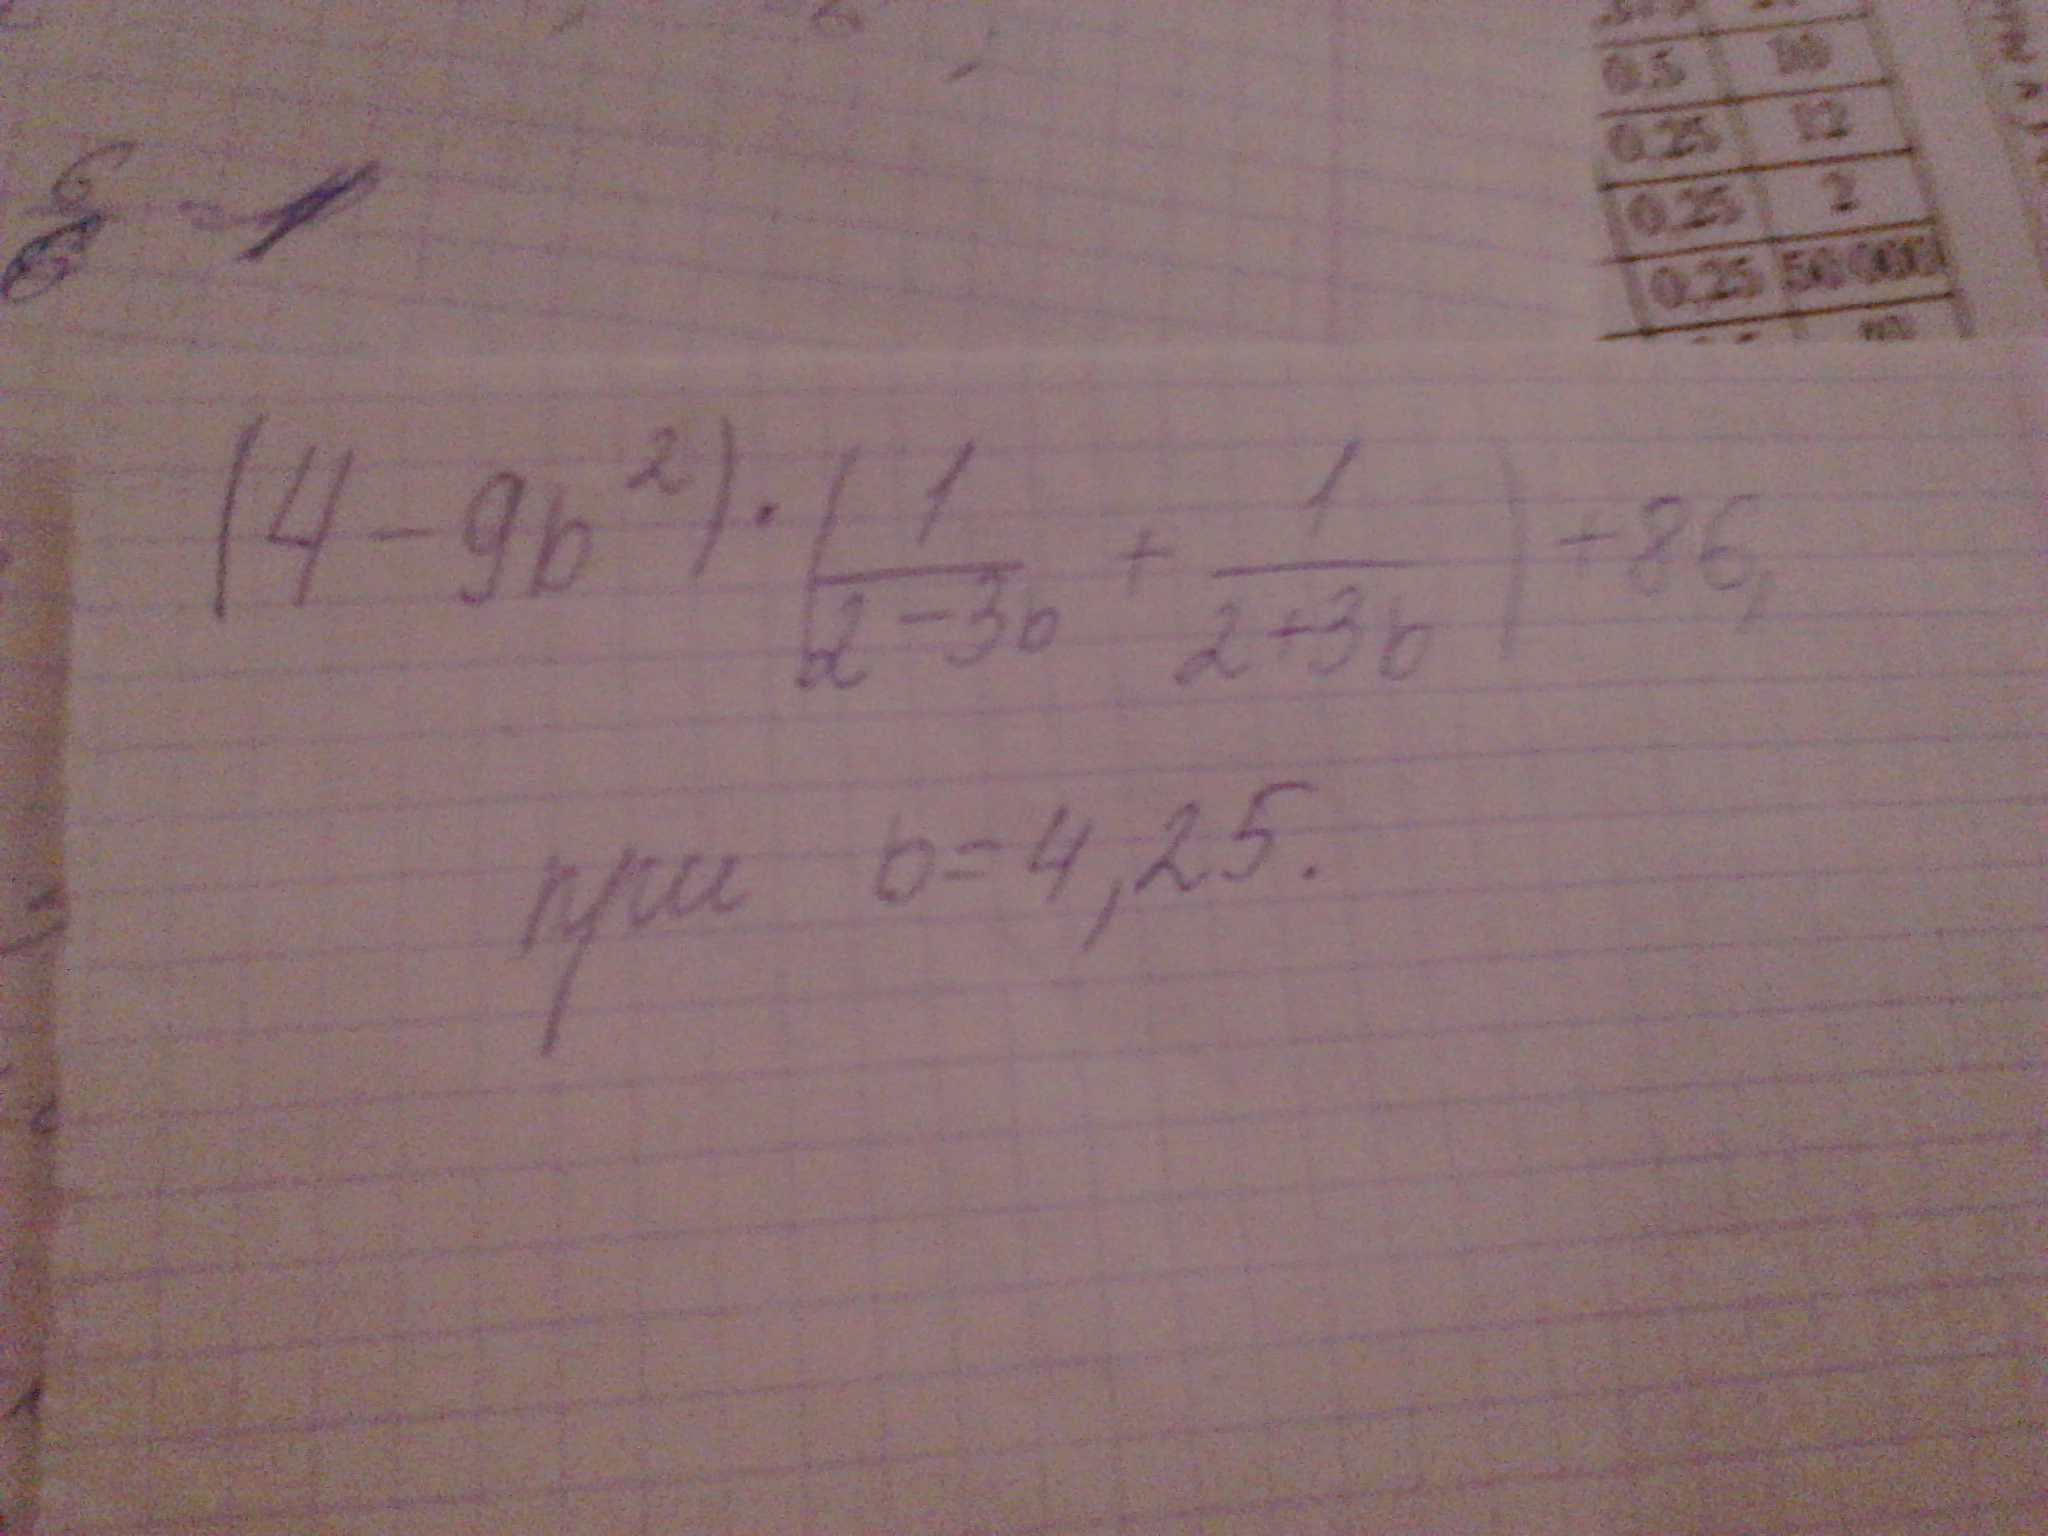 0.5 10
0.25 12
0.25 2
0.25 50 000
(4 - 9b²) · (1/(2 - 3b) + 1/(2 + 3b)) + 86,
при b = 4,25.